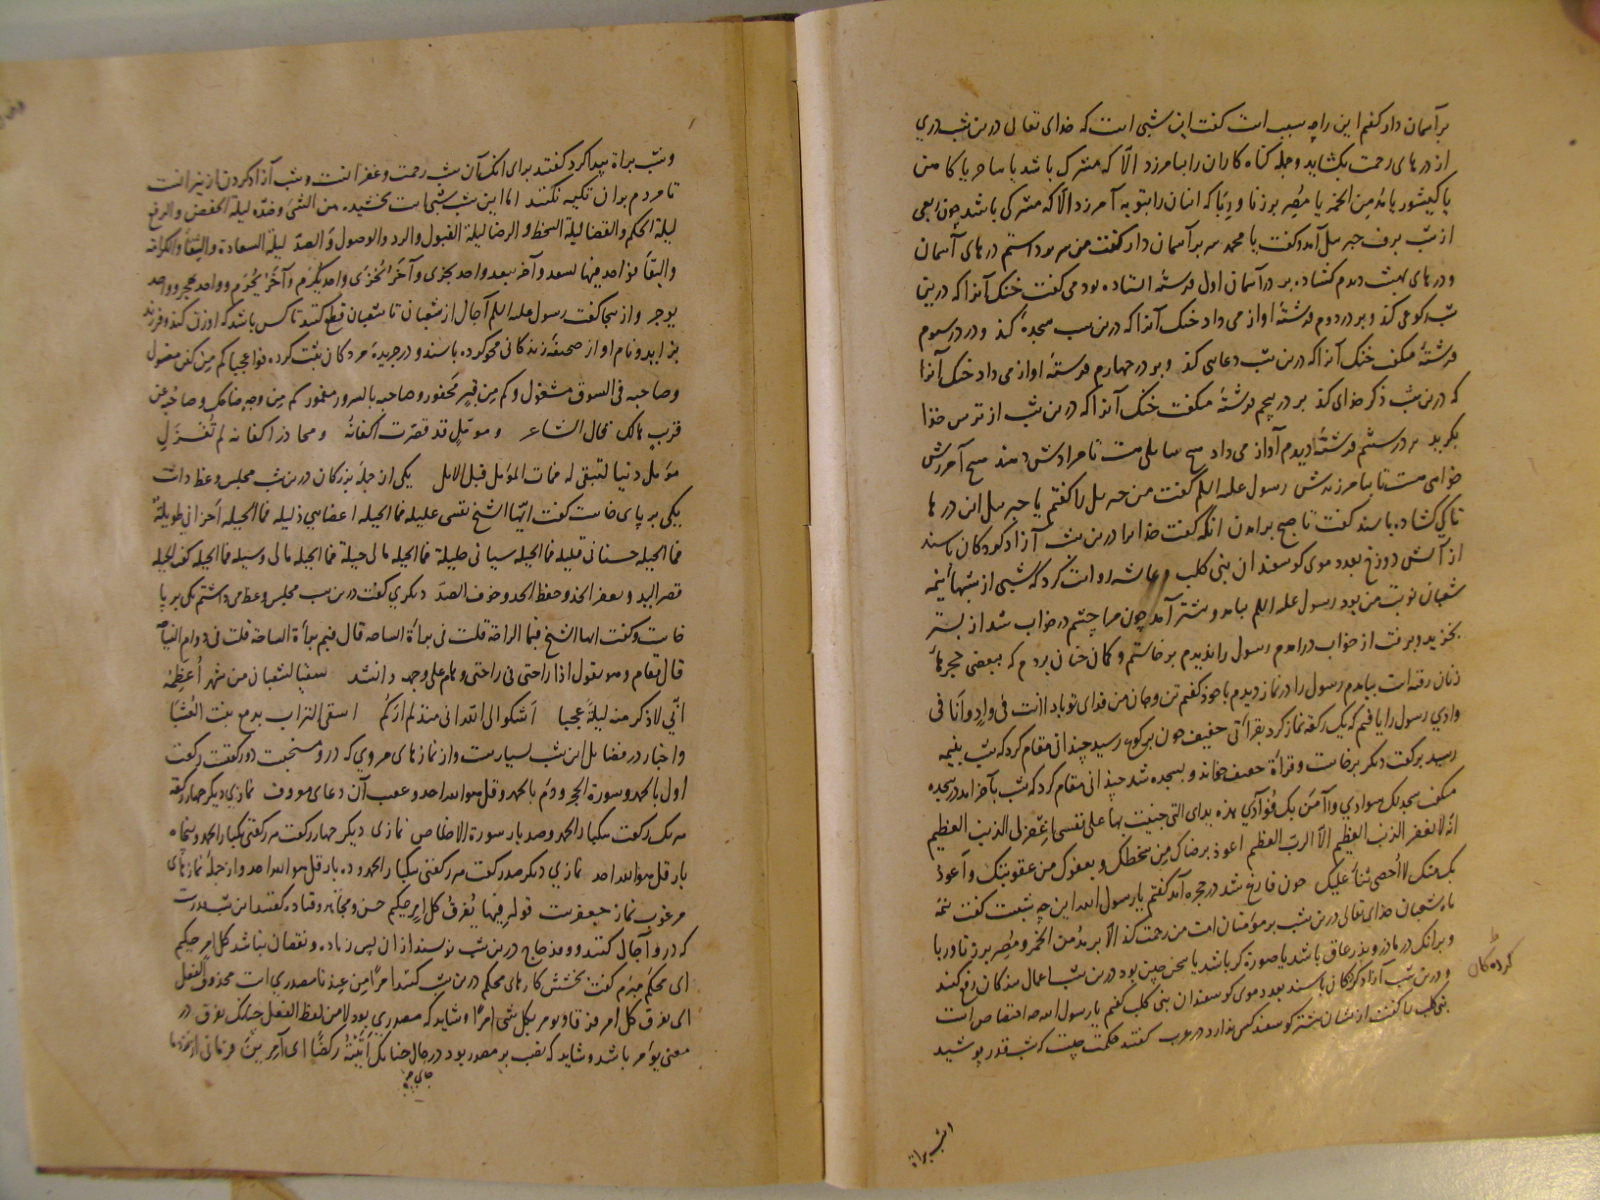 بر آسمان دار گفتم این را چه سبب است گفت این شبی است که خدای تعالی درین شب دری
از درهای رحمت بگشاید و جمله گناه کاران را بیامرزد الّا که مشرک باشد یا ساحر یا کاهن
یا مدمن الخمر یا مصر بر زنا و ربا که اینان را بتوبه آمرزد الّا که مشرکی باشد چون ربعی
از شب برفت جبرئیل آمد و گفت یا محمد سر بر آسمان دار گفت من سر برداشتم درهای آسمان
و درهای بهشت دیدم گشاده بر در آسمان اول فرشتهٔ استاده بود می گفت خنک آنرا که درین
شب رکوع می کند و بر در دوم فرشتهٔ آواز می داد خنک آنرا که درین شب سجده کند و بر در سیوم
فرشتهٔ میگفت خنک آنرا که درین شب دعا می کند و بر در چهارم فرشتهٔ آواز می داد خنک آنرا
که درین شب ذکر خدای کند بر در پنجم فرشتهٔ میگفت خنک آنرا که درین شب از ترس خدا
بگرید بر در ششم فرشتهٔ دیدم آواز می داد هیچ سایلی هست تا مرادش دهند هیچ آمرزش
خواهی هست تا بیامرزندش رسول علیه السلم گفت من جبرئیل را گفتم یا جبرئیل این درها
تا کی گشاده باشد گفت تا صبح برآمدن آنگه گفت خدایرا درین شب آزاد کردگان باشند
از آتش دوزخ بعدد موی گوسفندان بنی کلب و عایشه روایت کرد که شبی از شبها نیمه
شعبان نوبت من بود رسول علیه السلم بیامد و در بستر آمد چون مرا چشم در خواب شد از بستر
بخزید و برفت از خواب درآمدم رسول را ندیدم برخاستم و گمان چنان بردم که ببعضی حجرهای
زنان رفته است بیامدم رسول را در نماز دیدم با خود گفتم تن و جان من فدای تو باد انت فی وادٍ و انا فی
وادی رسول را یافتم که یک رکعه نماز کرد بقرائتی خفیف چون برکوع رسید چندانی مقام کرد که شب بنیمه
رسید برکعت دیگر برخاست و قراءة خفیف بخواند و بسجده شد چندانی مقام کرد که شب بآخر آمد در سجده
میگفت سجد لک سوادی و آمن بک فؤادی هذه یدای التی جنیت بها علی نفسی اغفر لی الذنب العظیم
انه لا یغفر الذنب العظیم الّا الربّ العظیم اعوذ برضاک من سخطک و بعفوک من عقوبتک و اعوذ
بک منک لا احصی ثناءً علیک چون فارغ شد در حجره آمد گفتم یا رسول الله این چه شبست گفت نیمهٔ
ماه شعبان خدای تعالی درین شب بر مؤمنان امت من رحمت کند الّا بر مدمن الخمر و مصر بر زنا و ربا
و بر آنک در مادر و پدر عاق باشد یا صورة گر باشد یا سخن چین بود درین شب اعمال بندگان رفع کنند
کرده گان
و درین شب آزاد باشند بعدد موی گوسفندان بنی کلب گفتم یا رسول الله چه اختصاص است
بنی کلب را گفت از ایشان بیشتر گوسفند کس ندارد در عرب گفتند حکمت چیست که شب قدر پوشید
و شب براة
و شب براة پیدا کرد گفتند برای آنک آن شب رحمت و غفرانست و شب آزاد کردن از نیرانست
تا مردم بر آن تکیه نکنند اما این شب شبهاست من الشیٔ و ضدّه لیلة الخفض و الرفع
لیلة الحکم و القضا لیلة السخط و الرضا لیلة القبول و الرد و الوصول و الصدّ لیلة السعادة و الشقا و الکرامة
و النقا فواحد فیها یسعد و آخر یبعد و واحد یجزی و آخر یخزی و واحد یکرم و آخر یحرم و واحد یهجر و واحد
یوجر و از اینجا گفت رسول علیه السلم آجال از شعبان تا شعبان قطع کنند تا کس باشد که او زن کند و فرزند
بزاید و نام او از صحیفهٔ زندگانی محو کرده باشند و در جریدهٔ مردگان ثبت کرده فواعجبا کم من کفن مغسول
و صاحبه فی السوق مشغول و کم من قبر محفور و صاحبه بالسرور مغمور کم من وجه ضاحک و صاحبه عن
قریب هالک قال الشاعر و مومّلٍ قد قصّرت اکفانُه و محاذر اکفانه لم تغزل
مؤمل دنیا لتبقی له فمات المؤمل قبل الامل یکی از جمله بزرگان درین شب مجلس وعظ داشت
یکی بر پای خاست گفت ایها الشیخ نفسی علیله فما الحیله اعضایی ذلیله فما الحیله احزانی طویلة
فما الحیله حسناتی قلیله فما الحیله سیاتی جلیلة فما الحیله مالی حیلة فما الحیله مالی وسیله فما الحیله گفت الحیله
قصر الید و تعفیر الخد و حفظ الحد و خوف الصدّ دیگری گفت درین شب مجلس وعظ می داشتم یکی بر پا
خاست و گفت ایها الشیخ فیما الراحة قلت فی براة الساحه قال فیم براة الساحة قلت فی دوام النیاحة
قال فقام و هو یقول اذا راحتی فی راحتی و هام علی وجهه و انشد سقیا لشعبان من شهر اعظمه
انّی لاذکر منه لیلةً عجبا اشکو الی الله انی منذ لم ارکم اسقی التراب بدمع ینبت العشبا
و اخبار در فضایل این شب بسیارست و از نمازهای مروی که درو مستحبّست دو رکعت رکعت
اول بالحمد و سورة الحجر و دوم بالحمد و قل هو الله احد و عقب آن دعای معروف نمازی دیگر چهار رکعة
هر یک رکعت یکبار الحمد و صد بار سورة الاخلاص نمازی دیگر چهار رکعت هر رکعتی یکبار الحمد و پنجاه
بار قل هو الله احد نمازی دیگر صد رکعت هر رکعتی یکبار الحمد و ده بار قل هو الله احد و از جمله نمازهای
مرغوب نماز جعفرست قوله فیها یفرق کل امر حکیم حسن و مجاهد و قتاده گفتند این شبیست
که درو آجال کنند و وفد حاج درین شب نویسند از آن پس زیاده و نقصان نباشد کل امر حکیم
ای محکم مبرم گفت بخشش کارهای محکم درین شب کنند امرًا من عندنا مصدریست محذوف الفعل
ای یفرق کل امر فرقا و یومر بکل شئ امرًا و شاید که مصدری بود لا من لفظ الفعل چنانک یفرق در
معنی یؤمر باشد و شاید که نصب بر مصدر بود در حال چنانک اتیتهُ رکضًا ای آمرین فرمانی از نزد ما